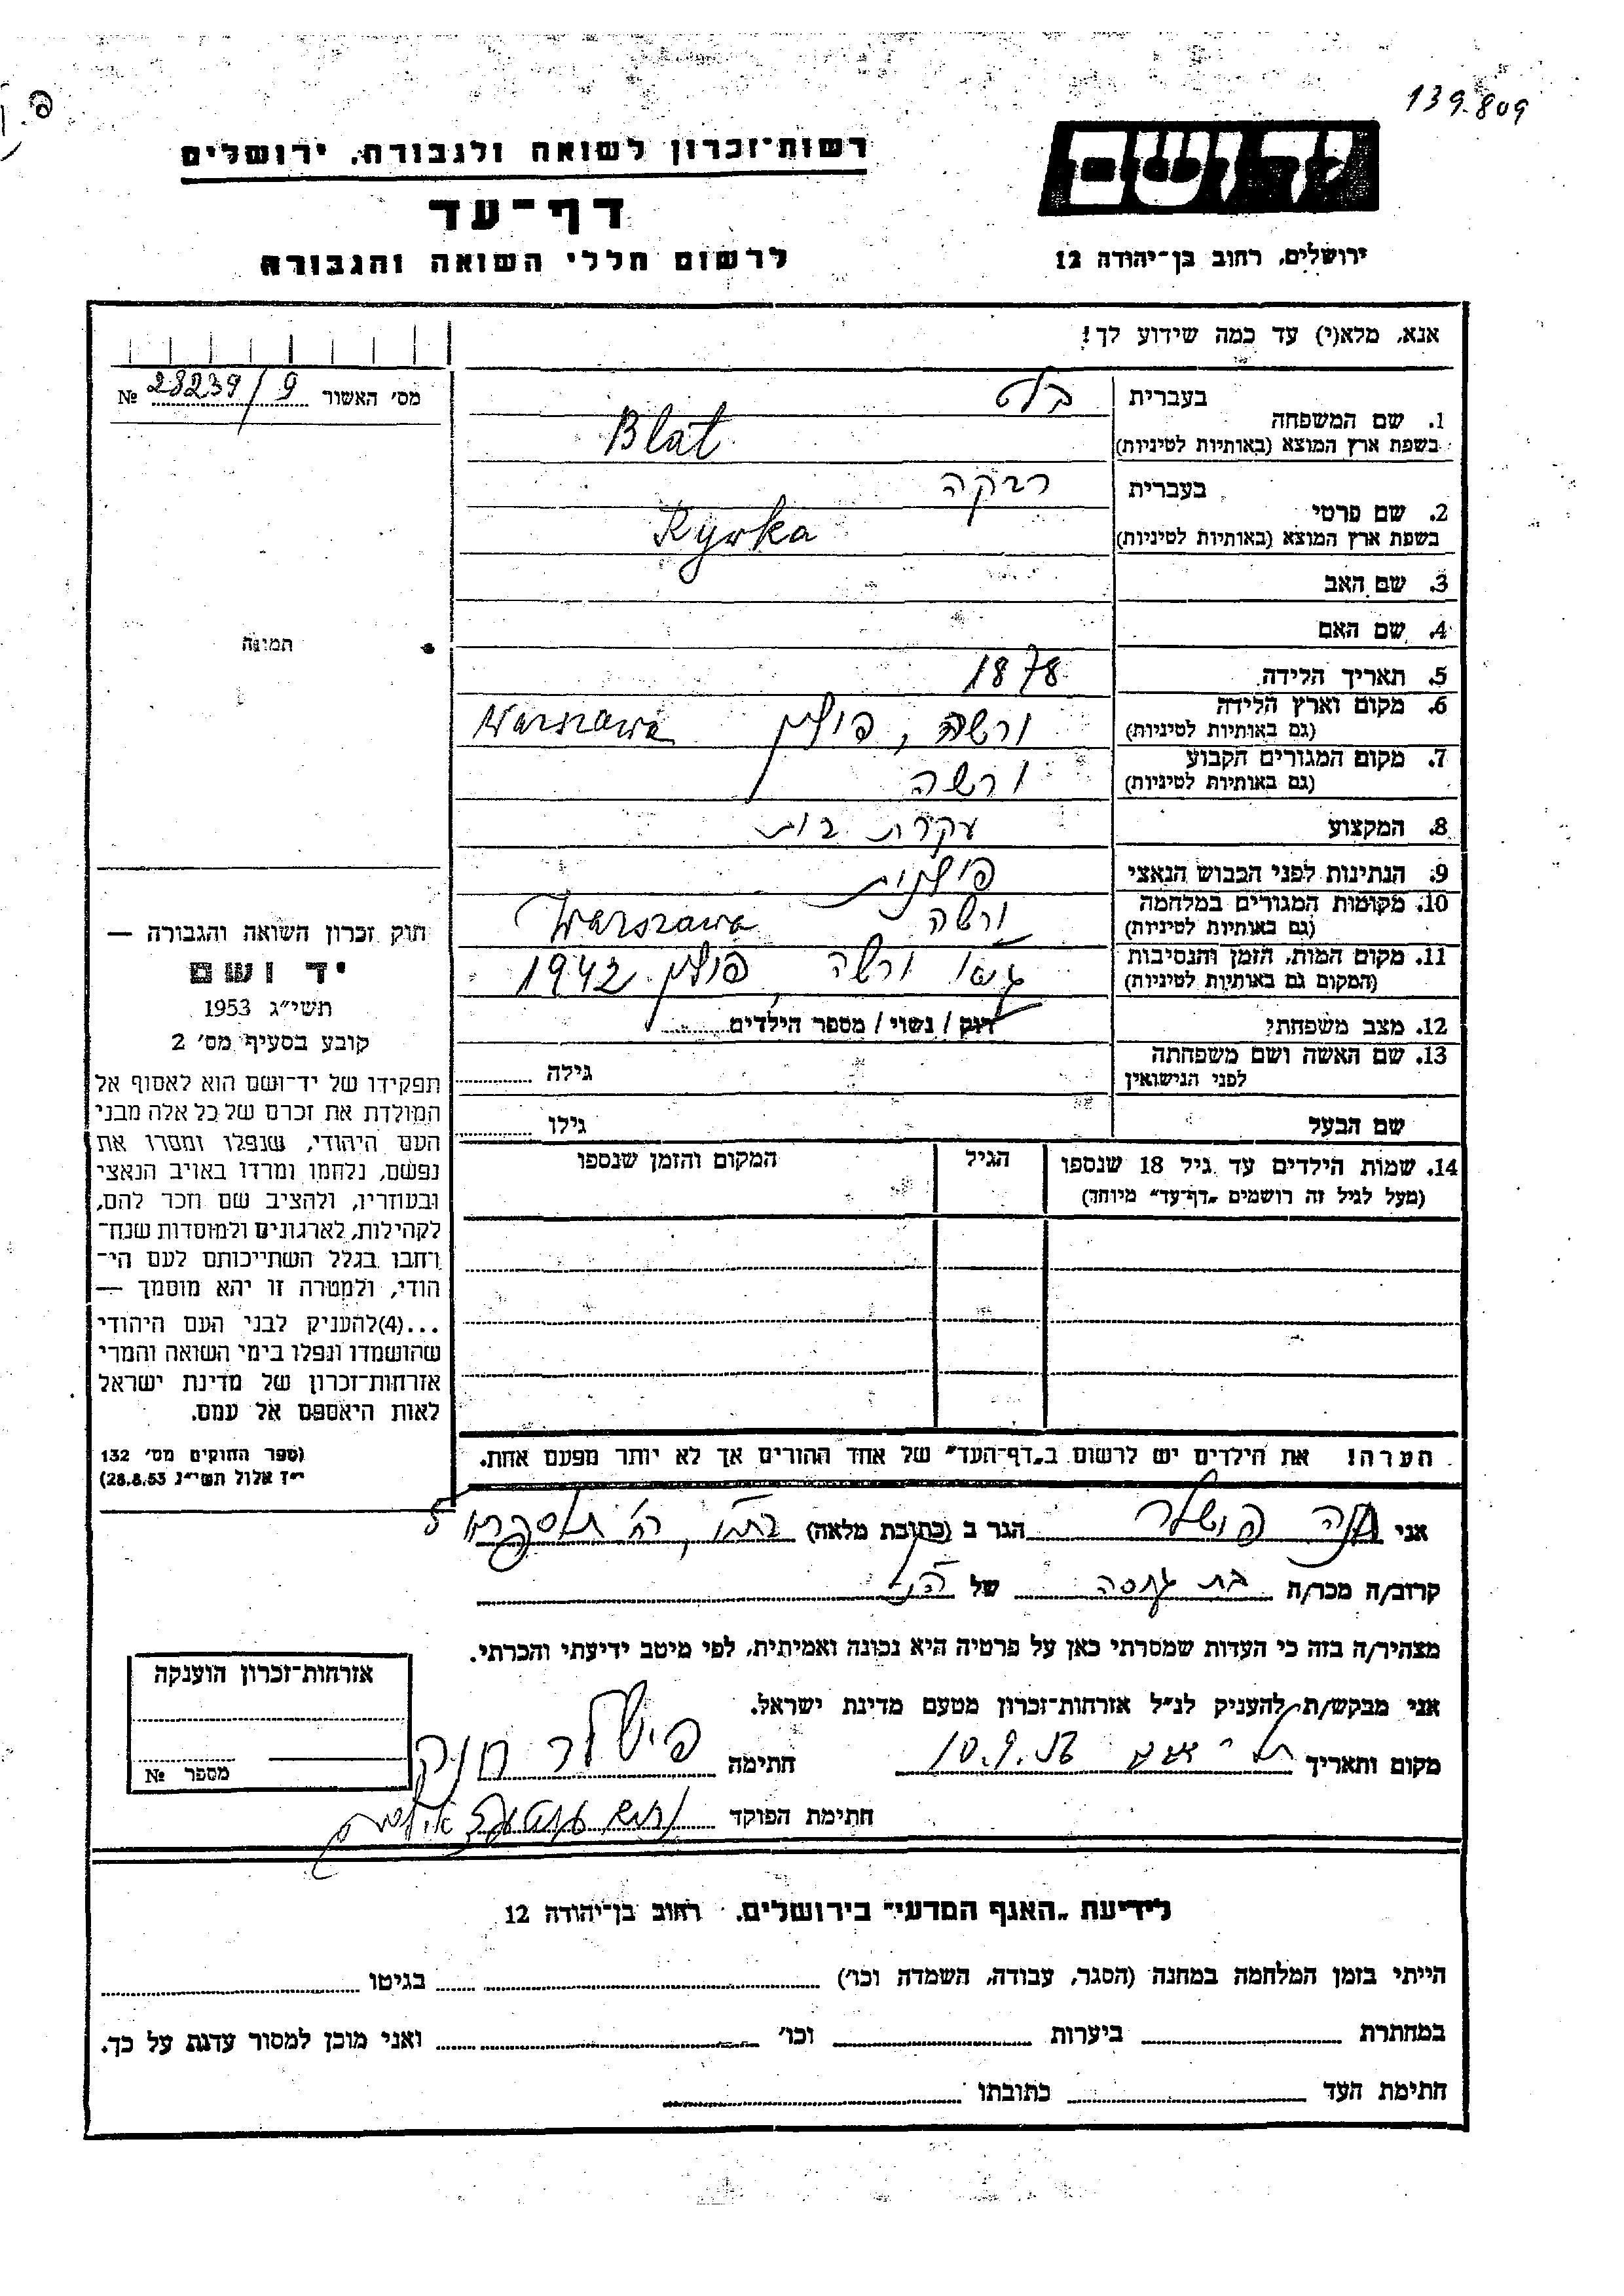 139.809
רשות־זכרון לשואה ולגבורה, ירושלים
דף־עד
לרשום חללי השואה והגבורה
יד ושם
ירושלים, רחוב בן־יהודה 12
אנא, מלא(י) עד כמה שידוע לך!
מס׳ האשור 28239/9 №
1. שם המשפחה
בעברית בלט
בשפת ארץ המוצא (באותיות לטיניות) Blat
2. שם פרטי
בעברית רבקה
בשפת ארץ המוצא (באותיות לטיניות) Ryvka
3. שם האב
4. שם האם
תמונה
5. תאריך הלידה 1878
6. מקום וארץ הלידה
(גם באותיות לטיניות) ורשה, פולין Warszawa
7. מקום המגורים הקבוע
(גם באותיות לטיניות) ורשה
8. המקצוע עקרת בית
9. הנתינות לפני הכבוש הנאצי פולנית
10. מקומות המגורים במלחמה
(גם באותיות לטיניות) ורשה Warszawa
11. מקום המות, הזמן והנסיבות
(המקום גם באותיות לטיניות) גטו ורשה פולין 1942
12. מצב משפחתי רוק / נשוי / מספר הילדים
13. שם האשה ושם משפחתה
לפני הנישואין גילה
שם הבעל גילו
14. שמות הילדים עד גיל 18 שנספו
(מעל לגיל זה רושמים „דף־עד״ מיוחד)
הגיל
המקום והזמן שנספו
חוק זכרון השואה והגבורה —
יד ושם
תשי״ג 1953
קובע בסעיף מס׳ 2
תפקידו של יד־ושם הוא לאסוף אל
המולדת את זכרם של כל אלה מבני
העם היהודי, שנפלו ומסרו את
נפשם, נלחמו ומרדו באויב הנאצי
ובעוזריו, ולהציב שם וזכר להם,
לקהילות, לארגונים ולמוסדות שנח־
רחבו בגלל השתייכותם לעם הי־
הודי, ולמטרה זו יהא מוסמך —
...(4)להעניק לבני העם היהודי
שהושמדו ונפלו בימי השואה והמרי
אזרחות־זכרון של מדינת ישראל
לאות היאספם אל עמם.
(ספר החוקים מס׳ 132
י״ד אלול תשי״ג 28.8.53)
הערה! את הילדים יש לרשום ב„דף־העד״ של אחד ההורים אך לא יותר מפעם אחת.
אני חנה פישלר הגר ב (כתובת מלאה)
קרוב/ה מכר/ה בת של
מצהיר/ה בזה כי העדות שמסרתי כאן על פרטיה היא נכונה ואמיתית, לפי מיטב ידיעתי והכרתי.
אני מבקש/ת להעניק לנ״ל אזרחות־זכרון מטעם מדינת ישראל.
מקום ותאריך 10.9.56 חתימה פישלר חנה
חתימת הפוקד
אזרחות־זכרון הוענקה
מספר №
לידיעת „האגף המדעי״ בירושלים, רחוב בן־יהודה 12
הייתי בזמן המלחמה במחנה (הסגר, עבודה, השמדה וכו׳) בגיטו
במחתרת ביערות וכו׳ ואני מוכן למסור עדות על כך.
חתימת העד כתובתו